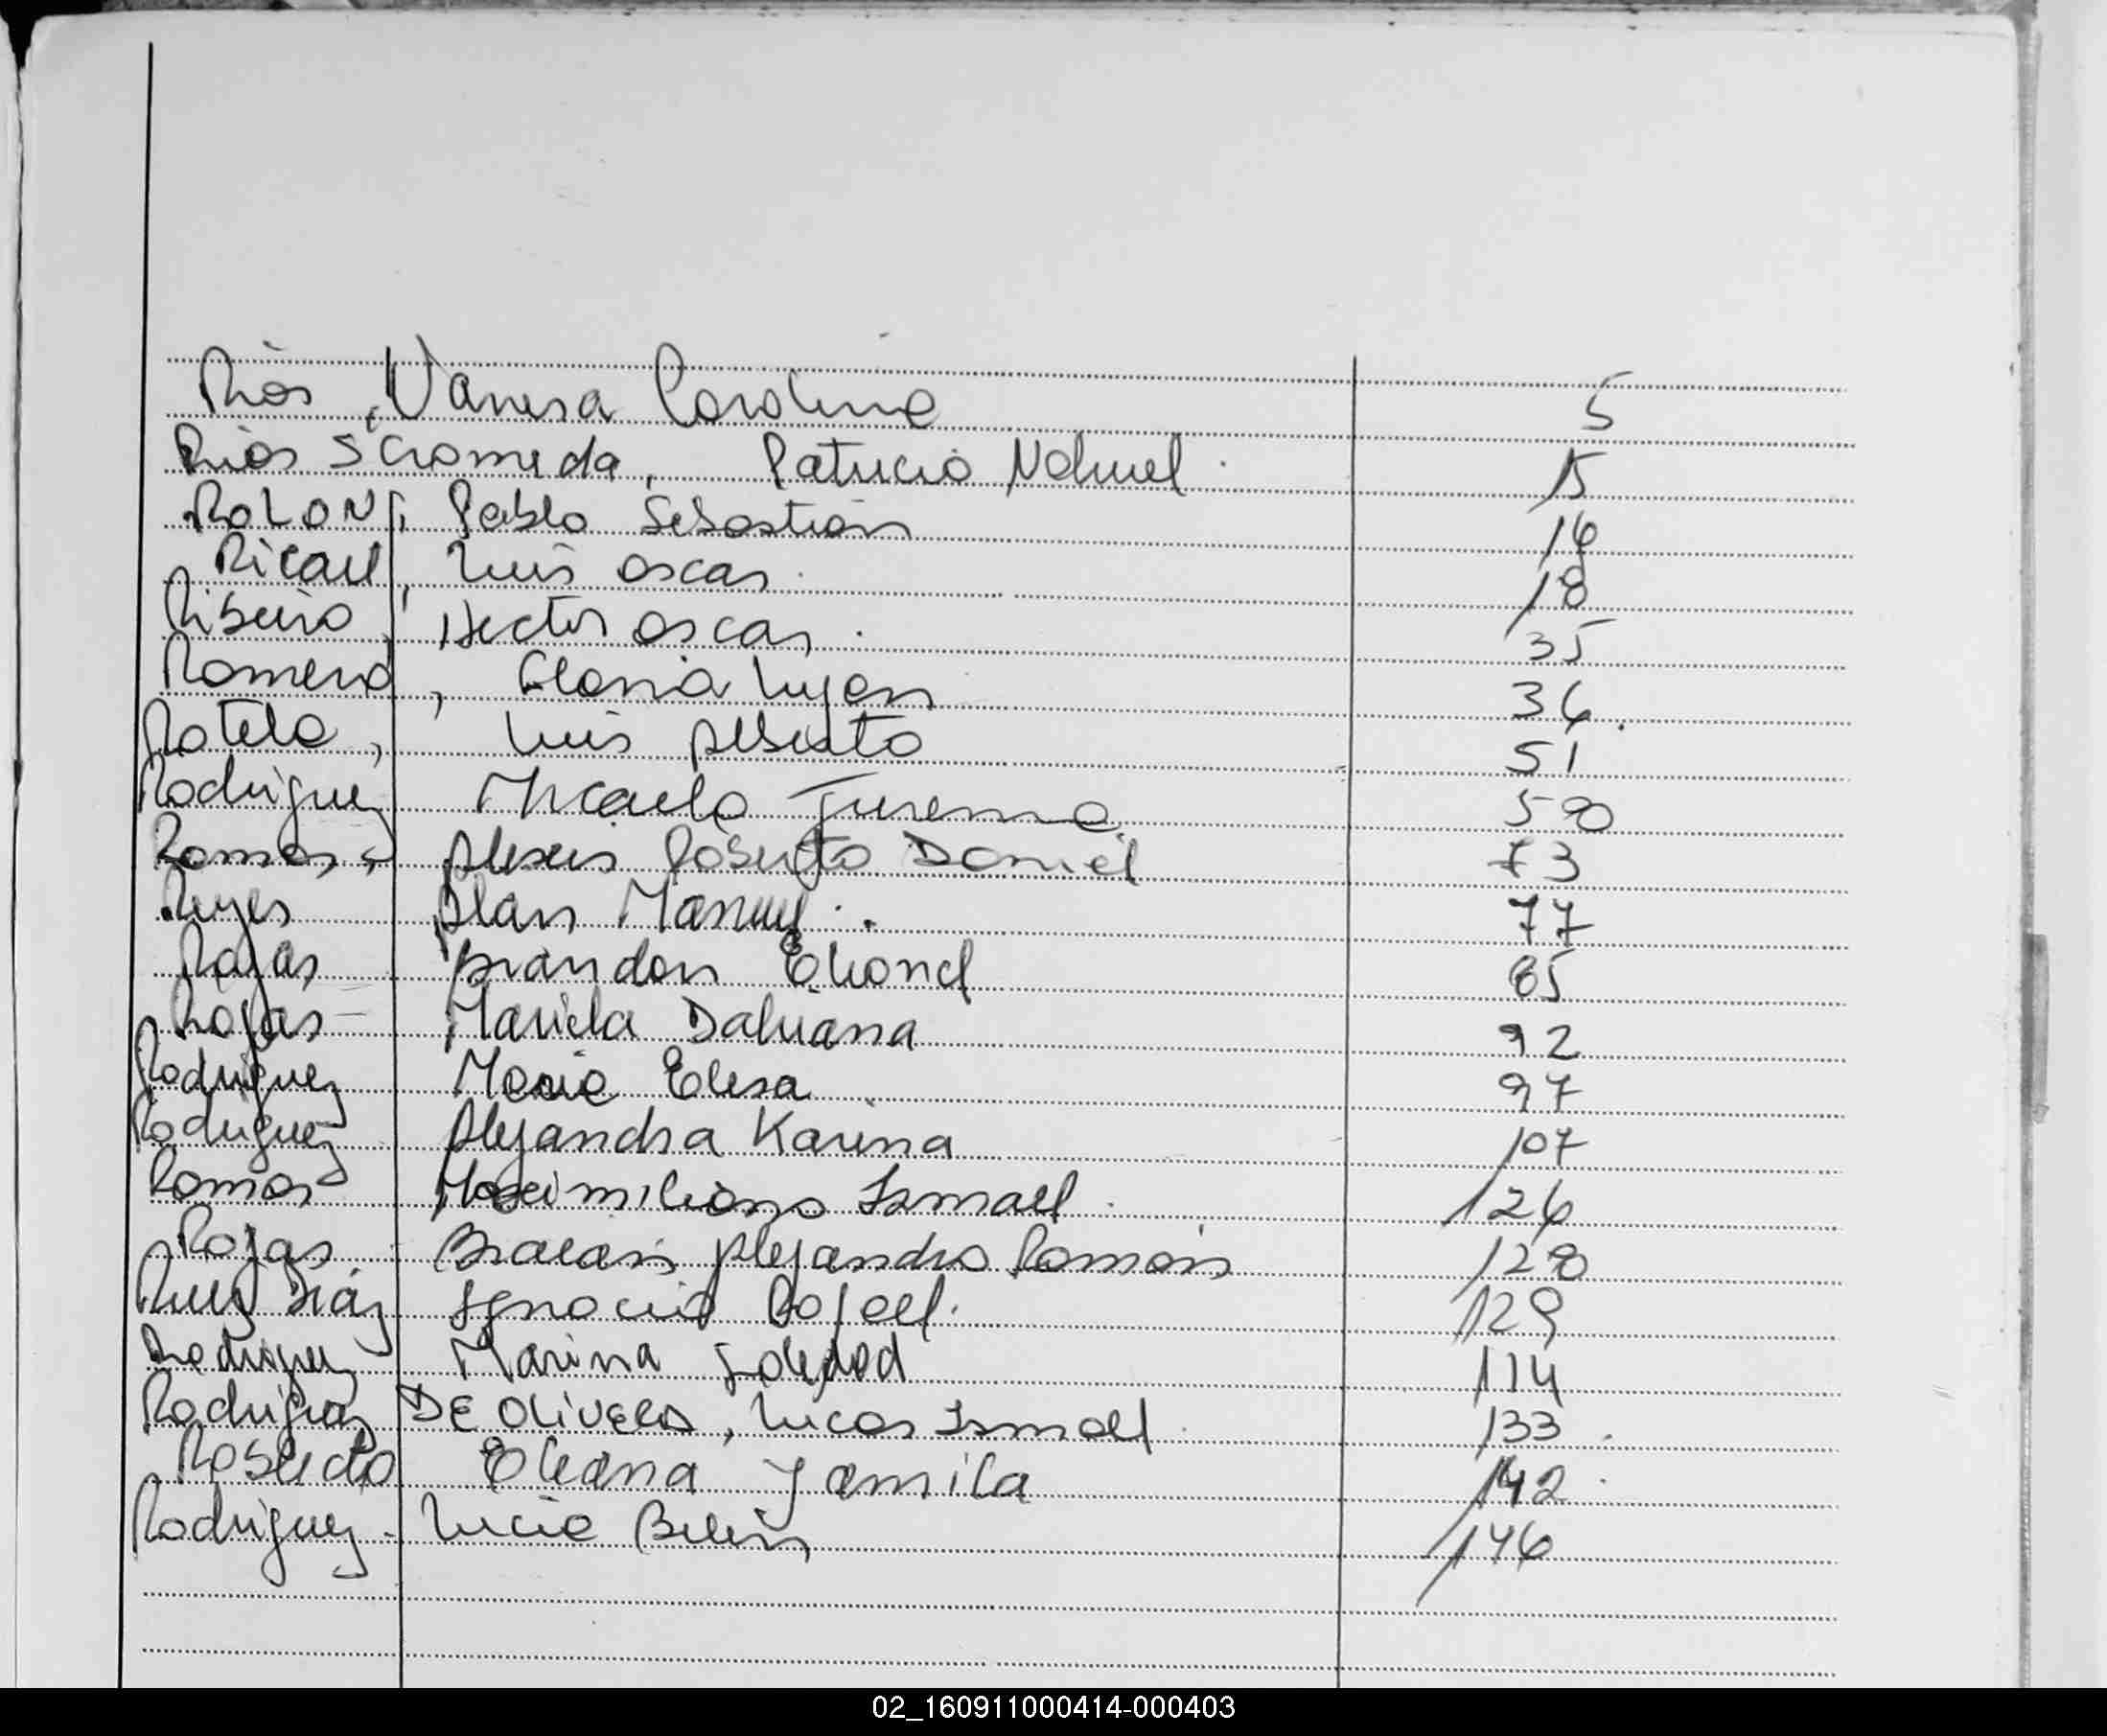 Rios, Vanesa Carolina 5
Rios Scromeda, Patricio Nahuel. 15
ROLON, Pablo Sebastián 16
Ricard, Luis Oscar. 18
Ribeiro, Hector Oscar. 35
Romero, Gloria Luján 36.
Rotela, Luis Alberto 51
Rodriguez Micaela 58
Ramos, Alexis Roberto Daniel 73
Reyes Alan Manuel. 77
Rojas Brandon Elionel 85
Rojas Mariela Dahiana 92
Rodriguez Maria Elisa 97
Rodriguez Alejandra Karina 107
Ramos Maximiliano Ismael. 126
Rojas Braian Alejandro Román 128
Ruiz Diaz Ignacio Rafael. 129
Rodriguez Marina Soledad 114
Rodriguez DE OliveRA, Lucas Ismael. 133.
Robledo Eliana Yamila 142.
Rodriguez - Lucia Belén 146
02_160911000414-000403